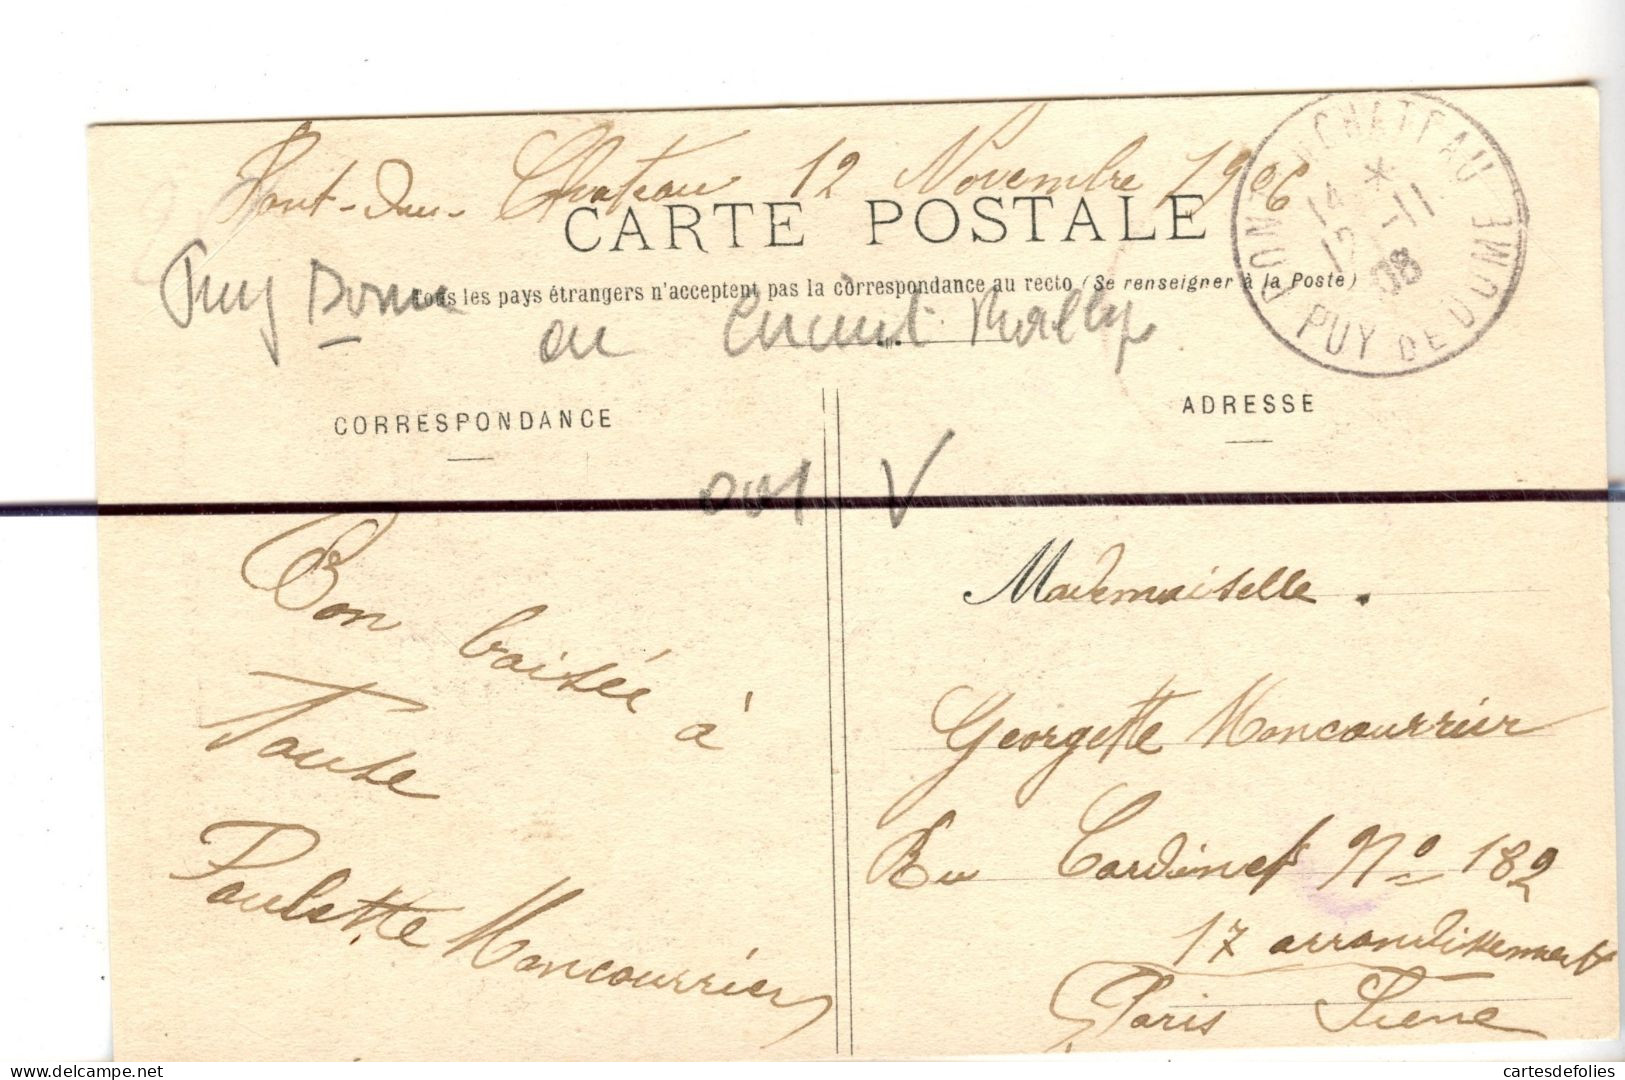 Pont-du-Château 12 Novembre 1906
CARTE POSTALE
Tous les pays étrangers n'acceptent pas la correspondance au recto (Se renseigner à la Poste)
PONT DU CHATEAU
*
14
12 -11
08
PUY DE DOME
Puy Dome
ou Circuit
CORRESPONDANCE
ADRESSE
001 V
Bon baisée à
Toute
Paulette Moncourrier
Mademoiselle.
Georgette Moncourrier
Ru Cardinet No 182
17 arrondissement
Paris Seine
cartesdefolies